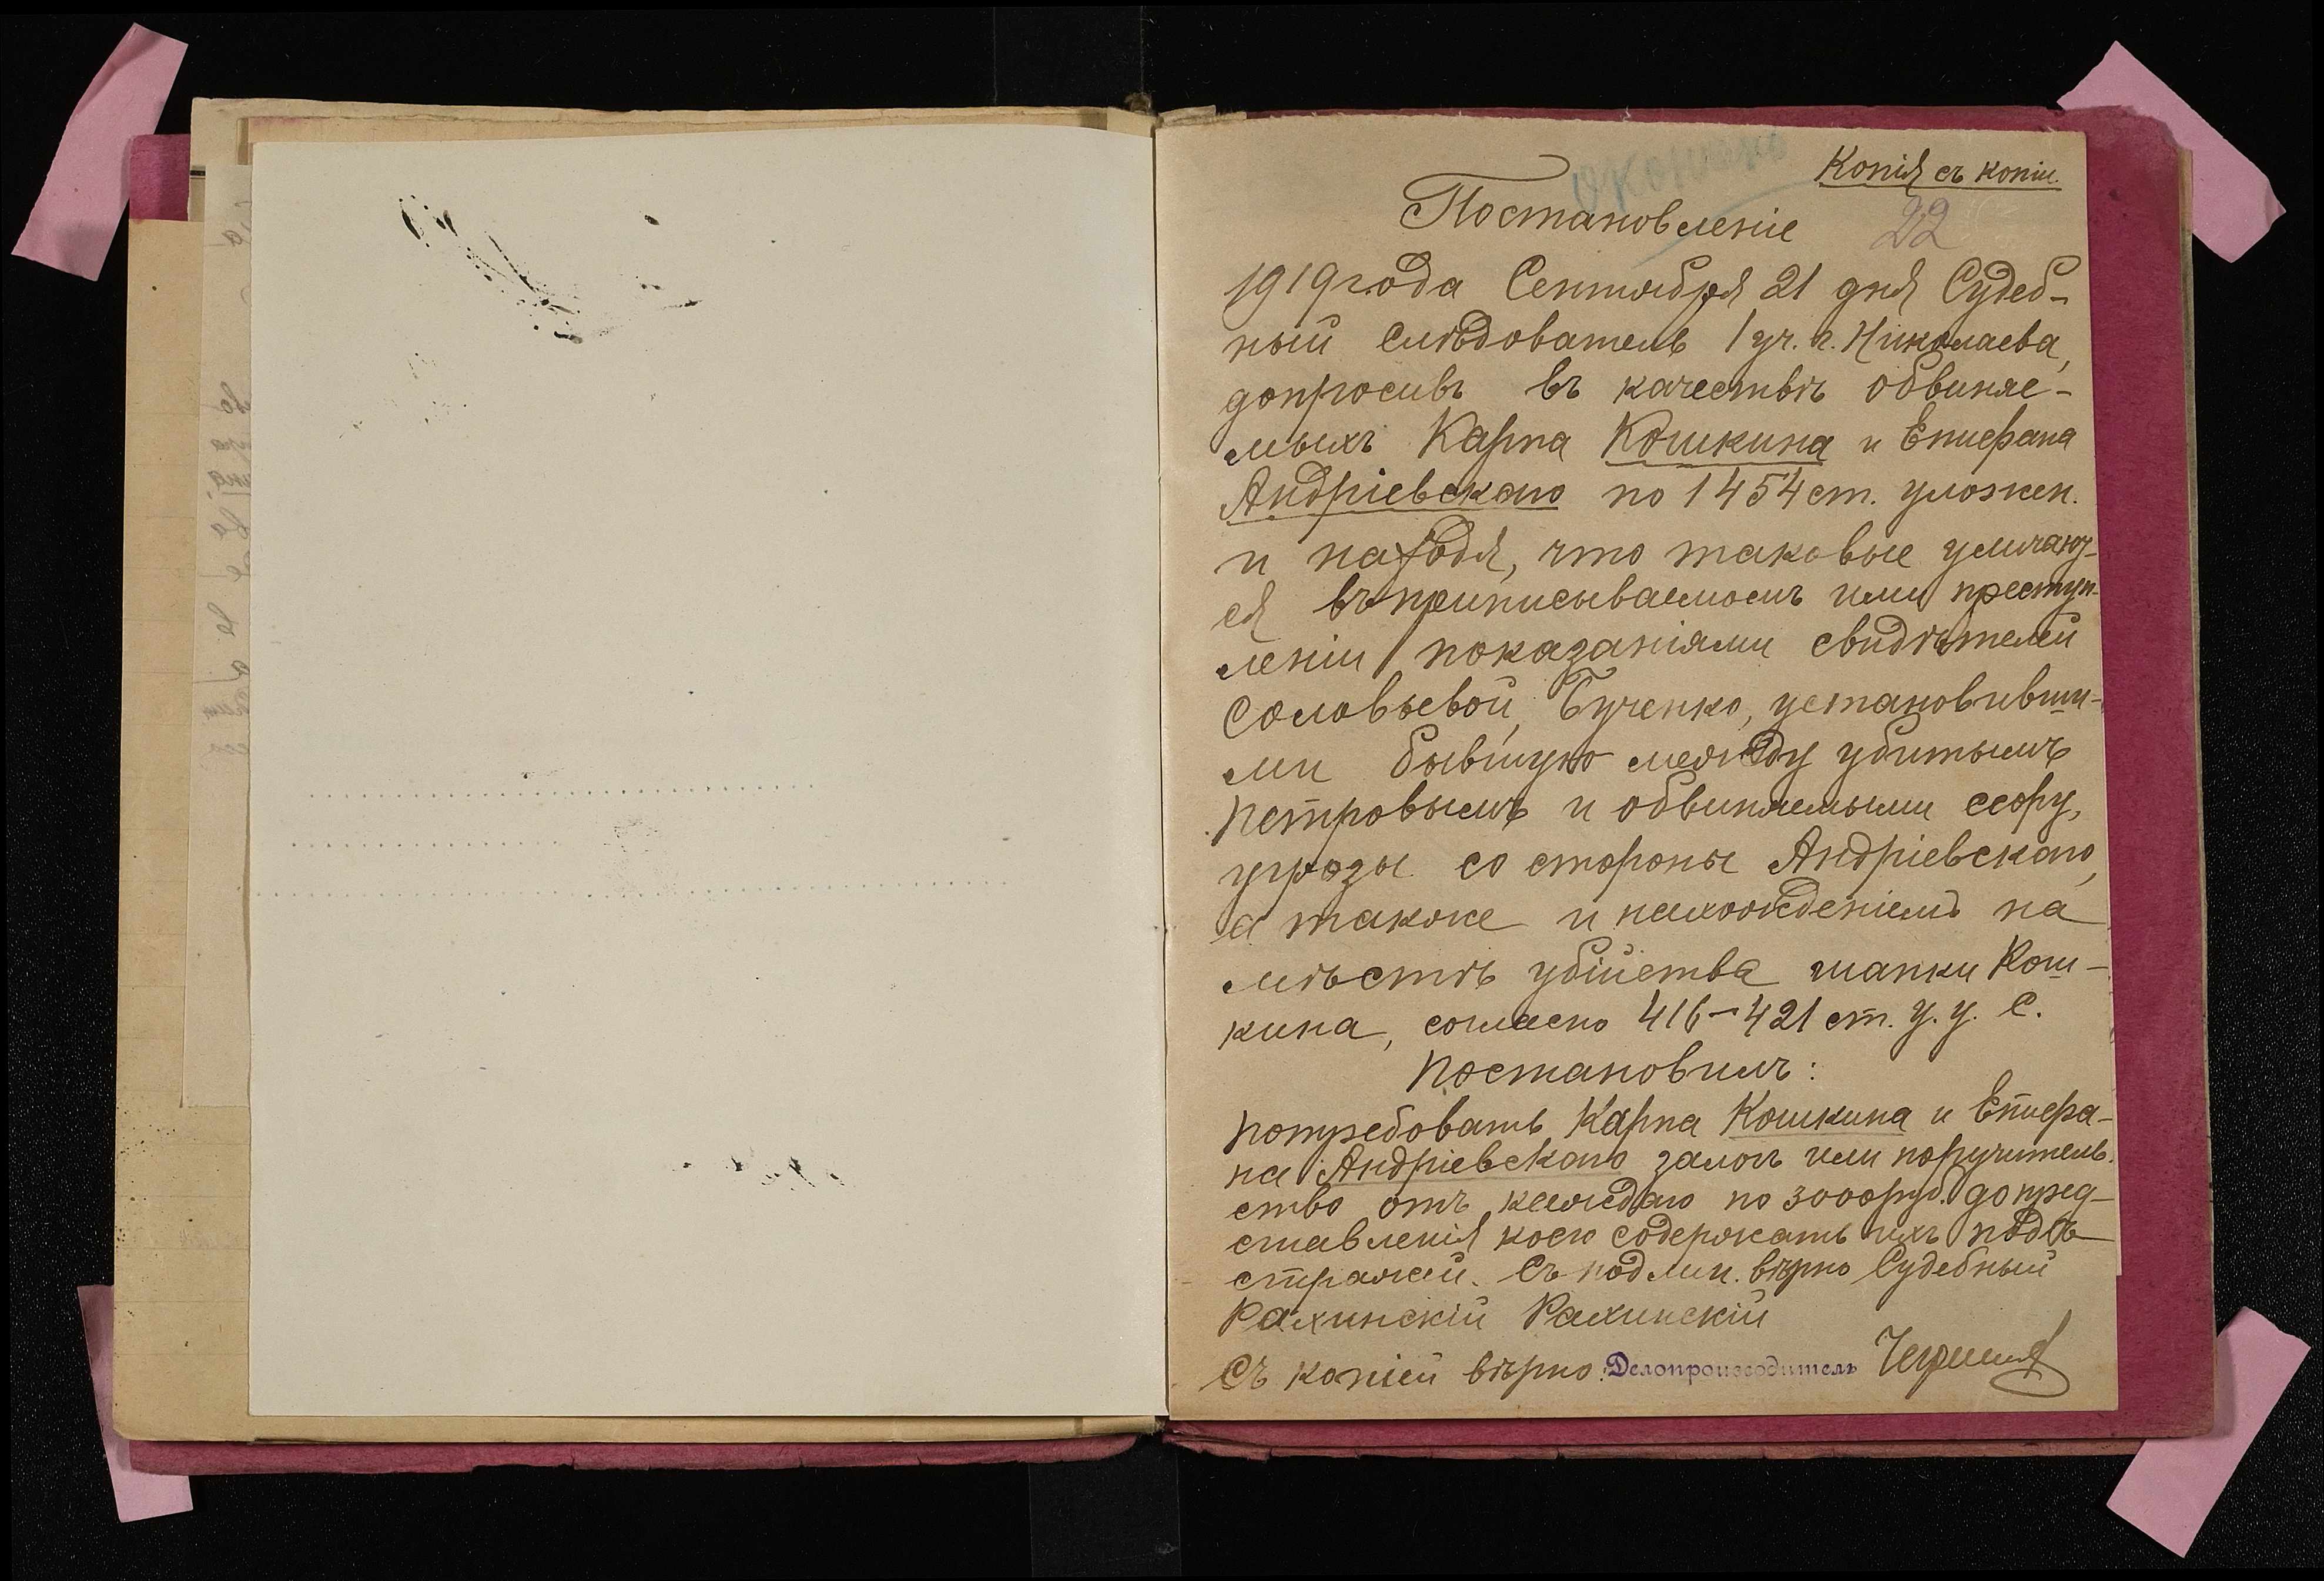 Копія съ копіи.
22
Постановленіе
1919 года Сентября 21 дня Судеб-
ный слѣдователь 1 уч. г. Николаева,
допросивъ въ качествѣ обвиняе-
мыхъ Карпа Кошкина и Епифана
Андріевскаго по 1454 ст. уложен.
и находя, что таковые уличают-
ся въ приписываемомъ ими преступ-
леніи показаніями свидѣтелей
Соловьевой, Бученко, установивши-
ми бывшую между убитымъ
Петровымъ и обвиняемыми ссору,
угрозы со стороны Андріевскаго,
а также и нахожденіемъ на
мѣстѣ убійства шапки Кош-
кина, согласно 416-421 ст. У. У. С.
постановилъ:
потребовать Карпа Кошкина и Епифа-
на Андріевскаго залогъ или поручитель-
ство отъ каждаго по 3000 руб. до пред-
ставленія коего содержать ихъ подъ
стражей. Съ подлин. вѣрно Судебный
Рахинскій Рахинскій
Съ копіей вѣрно: Делопроизводитель